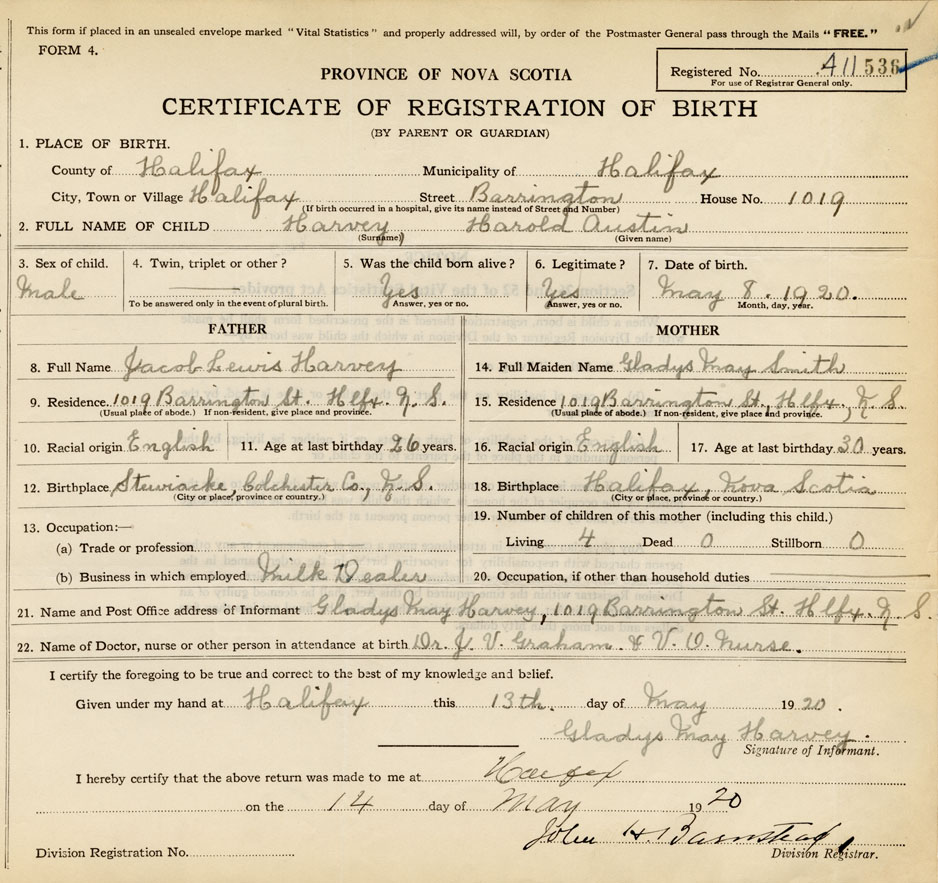 This form if placed in an unsealed envelope marked "Vital Statistics" and properly addressed will, by order of the Postmaster General pass through the Mails "FREE."
FORM 4.
Registered No. 411536
For use of Registrar General only.
PROVINCE OF NOVA SCOTIA
CERTIFICATE OF REGISTRATION OF BIRTH
(BY PARENT OR GUARDIAN)
1. PLACE OF BIRTH.
County of Halifax Municipality of Halifax
City, Town or Village Halifax Street Barrington House No. 1019
(If birth occurred in a hospital, give its name instead of Street and Number)
2. FULL NAME OF CHILD Harvey Harold Austin
(Surname) (Given name)
3. Sex of child. 4. Twin, triplet or other? 5. Was the child born alive? 6. Legitimate? 7. Date of birth.
Male Yes Yes May 8. 1920.
To be answered only in the event of plural birth. Answer, yes or no. Answer, yes or no. Month, day, year.
FATHER MOTHER
8. Full Name Jacob Lewis Harvey 14. Full Maiden Name Gladys May Smith
9. Residence 1019 Barrington St. Hlfx. N. S. 15. Residence 1019 Barrington St., Hlfx., N. S.
(Usual place of abode.) If non-resident, give place and province. (Usual place of abode.) If non-resident, give place and province.
10. Racial origin English 11. Age at last birthday 26 years. 16. Racial origin English 17. Age at last birthday 30 years.
12. Birthplace Stewiacke, Colchester Co., N. S. 18. Birthplace Halifax, Nova Scotia
(City or place, province or country.) (City or place, province or country.)
13. Occupation:— 19. Number of children of this mother (including this child.)
(a) Trade or profession Living 4 Dead 0 Stillborn 0
(b) Business in which employed Milk Dealer 20. Occupation, if other than household duties
21. Name and Post Office address of Informant Gladys May Harvey, 1019 Barrington St. Hlfx N. S.
22. Name of Doctor, nurse or other person in attendance at birth Dr. J. V. Graham. & V. O. Nurse.
I certify the foregoing to be true and correct to the best of my knowledge and belief.
Given under my hand at Halifax this 13th. day of May 1920.
Gladys May Harvey.
Signature of Informant.
I hereby certify that the above return was made to me at Halifax
on the 14 day of May 1920
John H. Barnstead
Division Registration No. Division Registrar.